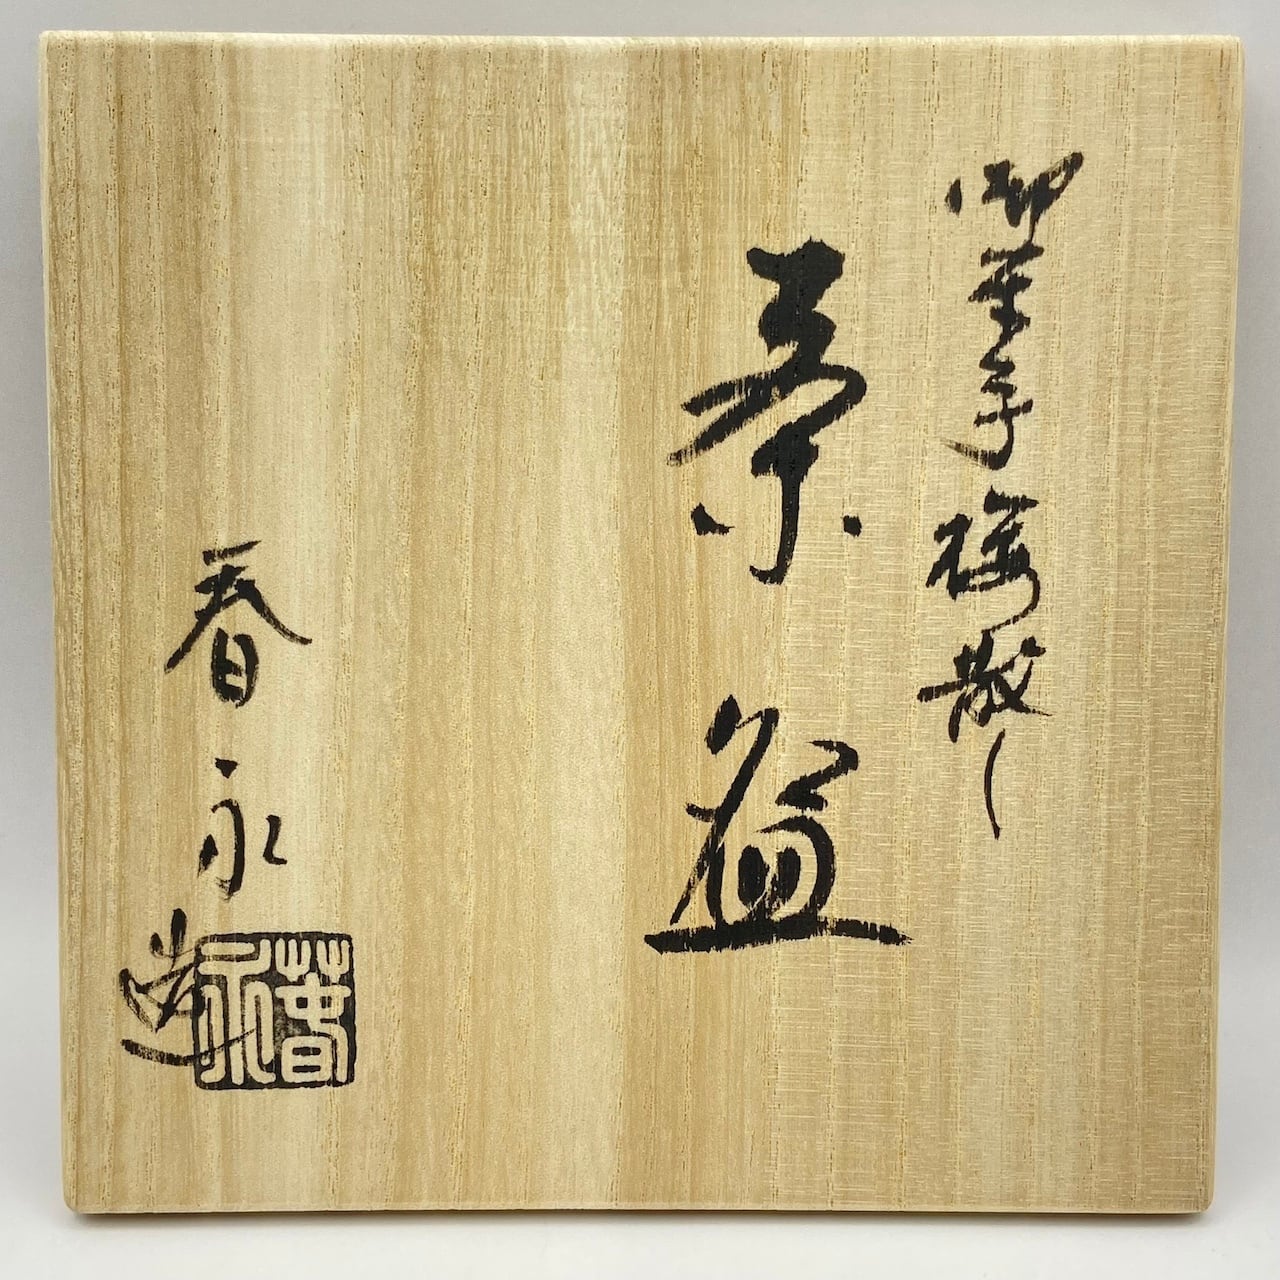 御本手桜散し
茶盌
春永造
春永